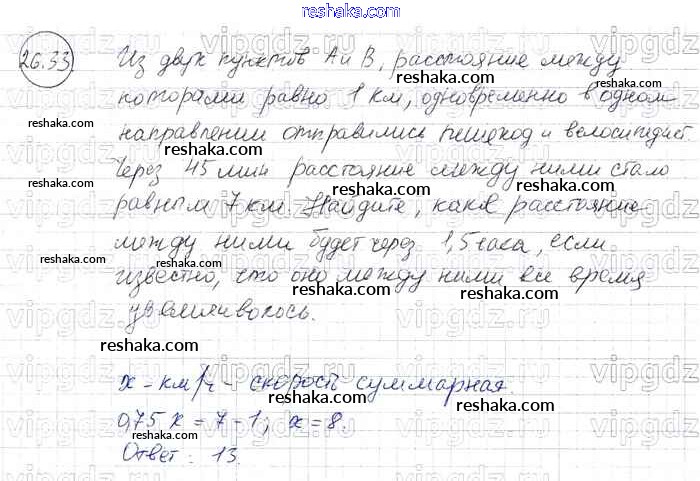 reshaka.com
26.33
Из двух пунктов А и В, расстояние между
reshaka.com
которами равно 1 км, одновременно в одном
reshaka.com
направлении отправились пешеход и велосипедист.
reshaka.com
Через 45 мин расстояние между ними стало
reshaka.com
равным 7 км. Найдите, какое расстояние
reshaka.com
между ними будет через 1,5 часа, если
reshaka.com
известно, что оно между ними все время
reshaka.com
увеличиволось.
reshaka.com
x - км/ч - скорость суммарная.
reshaka.com
0,75 x = 7 - 1; x = 8.
reshaka.com
Ответ: 13.
reshaka.com
vipgdz